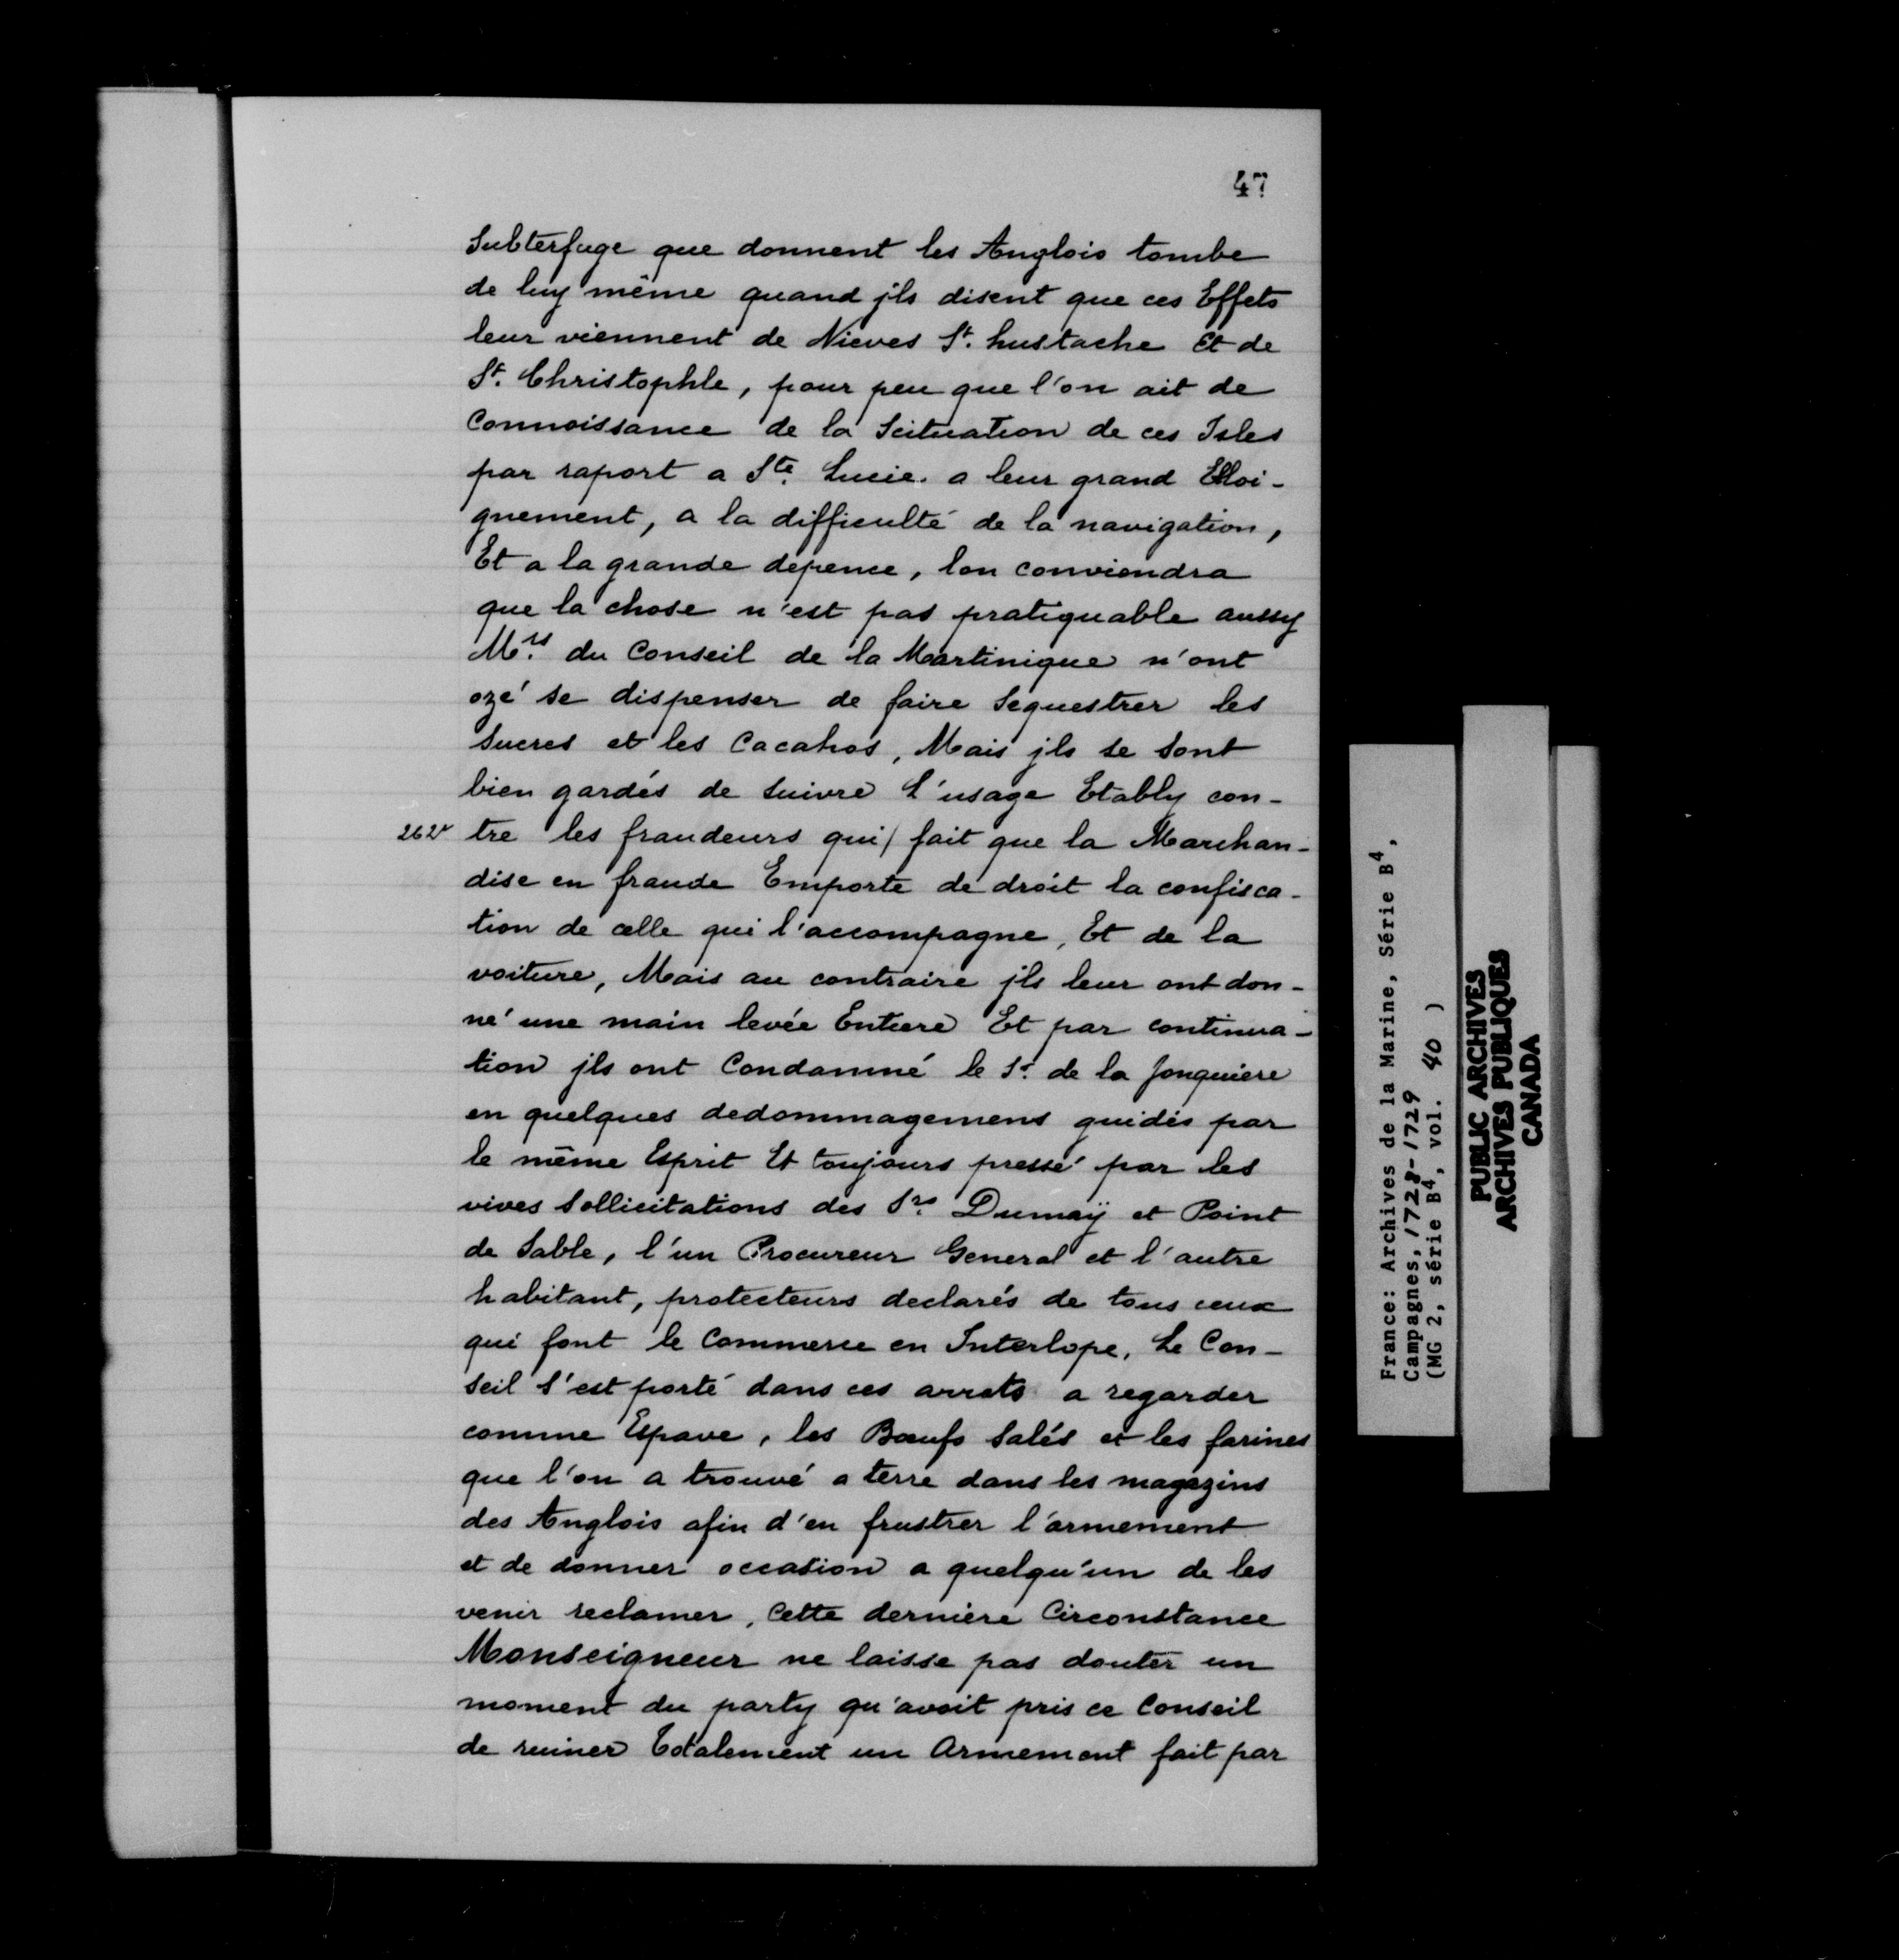 47
Subterfuge que donnent les Anglois tombe
de luy même quand jls disent que ces Effets
leur viennent de Nieves St. Lustache Et de
St. Christophle, pour peu que l'on ait de
Connoissance de la Scituation de ces Isles
par raport a Ste. Lucie. a leur grand Eloi-
gnement, a la difficulté de la navigation,
Et a la grande depence, lon conviendra
que la chose n'est pas pratiquable aussy
Mrs. du Conseil de la Martinique n'ont
ozé se dispenser de faire Sequestrer les
Sucres et les Cacahos, Mais jls se sont
bien gardés de suivre L'usage Etably con-
262v tre les fraudeurs qui/ fait que la Marchan-
dise en fraude Emporte de droit la confisca-
tion de celle qui l'accompagne, Et de la
voiture, Mais au contraire jls leur ont don-
né une main levée Entiere Et par continua-
tion jls ont Condamné le Sr. de la Jonquiere
en quelques dedommagemens guidés par
le même Esprit Et toujours pressé par les
vives Sollicitations des Srs. Dumaÿ et Point
de Sable, l'un Procureur General et l'autre
habitant, protecteurs declarés de tous ceux
qui font le Commerce en Interlope, Le Con-
seil s'est porté dans ces arrets a regarder
comme Epave, les Bœufs Salés et les farines
que l'on a trouvé a terre dans les magazins
des Anglois afin d'en frustrer l'armement
et de donner occasion a quelqu'un de les
venir reclamer, Cette derniere Circonstance
Monseigneur ne laisse pas douter un
moment du party qu'avoit pris ce Conseil
de ruiner Totalement un Armement fait par
France: Archives de la Marine, Série B4,
Campagnes, 1728-1729
(MG 2, série B4, vol. 40 )
PUBLIC ARCHIVES
ARCHIVES PUBLIQUES
CANADA